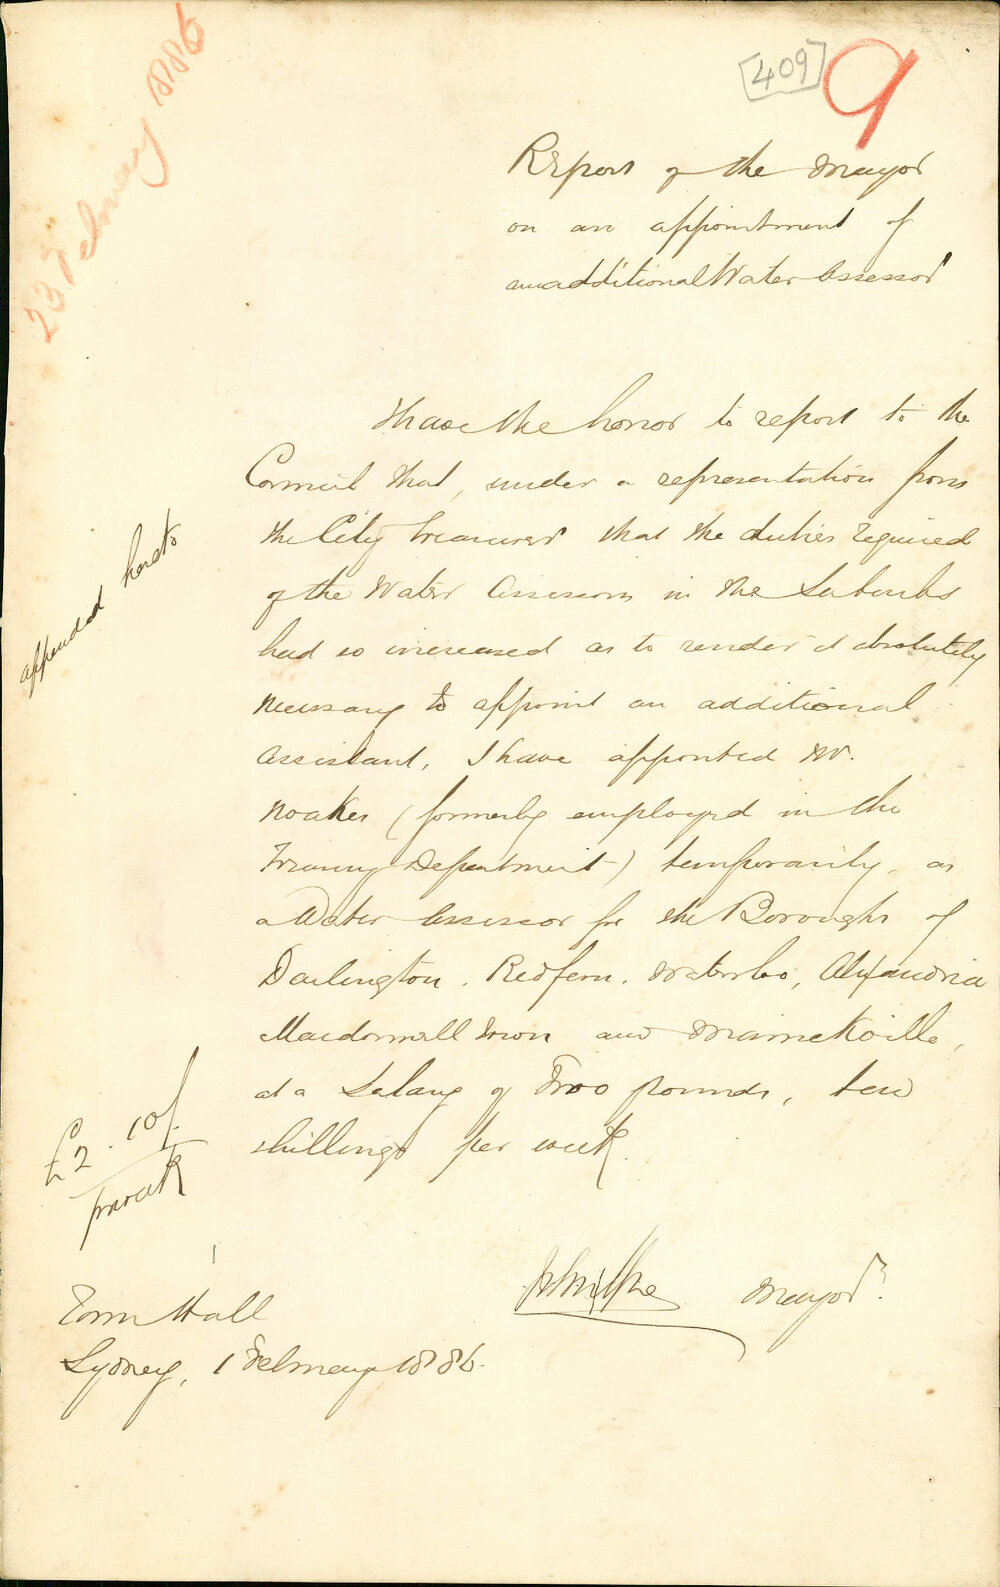 23 February 1886
[409]
9
Report of the Mayor
on an appointment of
an additional Water Assessor
I have the honor to report to the
Council that, under a representation from
the City Treasurer that the duties required
of the Water Assessors in the Suburbs
had so increased as to render it absolutely
necessary to appoint an additional
assistant, I have appointed Mr.
Noakes (formerly employed in the
Treasury Department) temporarily, as
a Water Assessor for the Boroughs of
Darlington, Redfern, Waterloo, Alexandria
Macdonaldtown and Marrickville,
at a Salary of Two pounds, ten
shillings per week.
appended hereto
£2.10/.
per week
Mayor
Town Hall
Sydney, 1 February 1886.